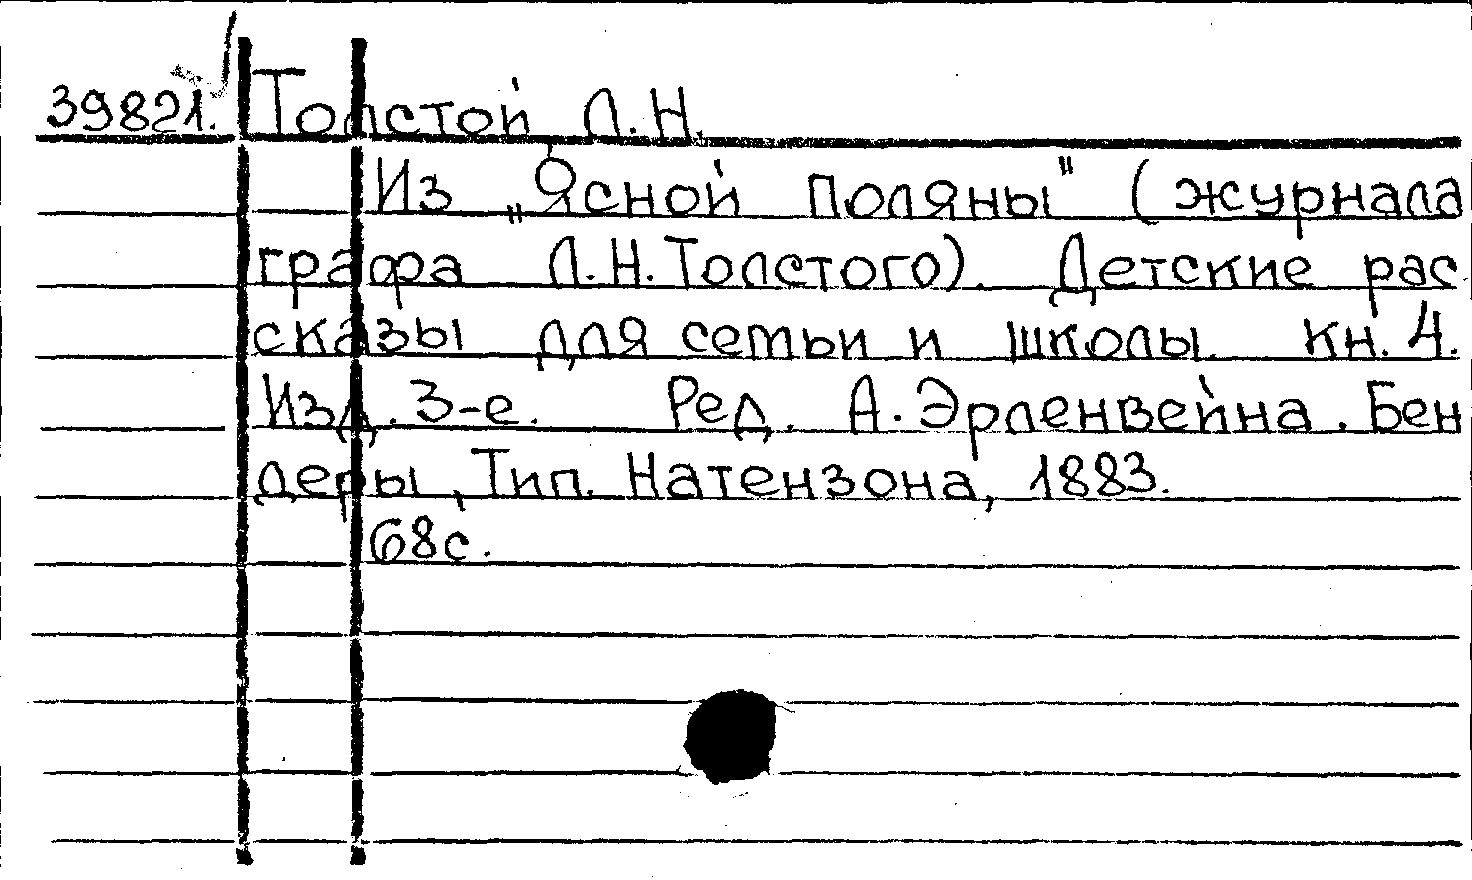 39821. Толстой Л.Н.
Из „Ясной поляны" (журнала
графа Л.Н.Толстого). Детские рас
сказы для семьи и школы. кн. 4.
Изд. 3-е. Ред. А. Эрленвейна. Бен
деры, Тип. Натензона, 1883.
68с.